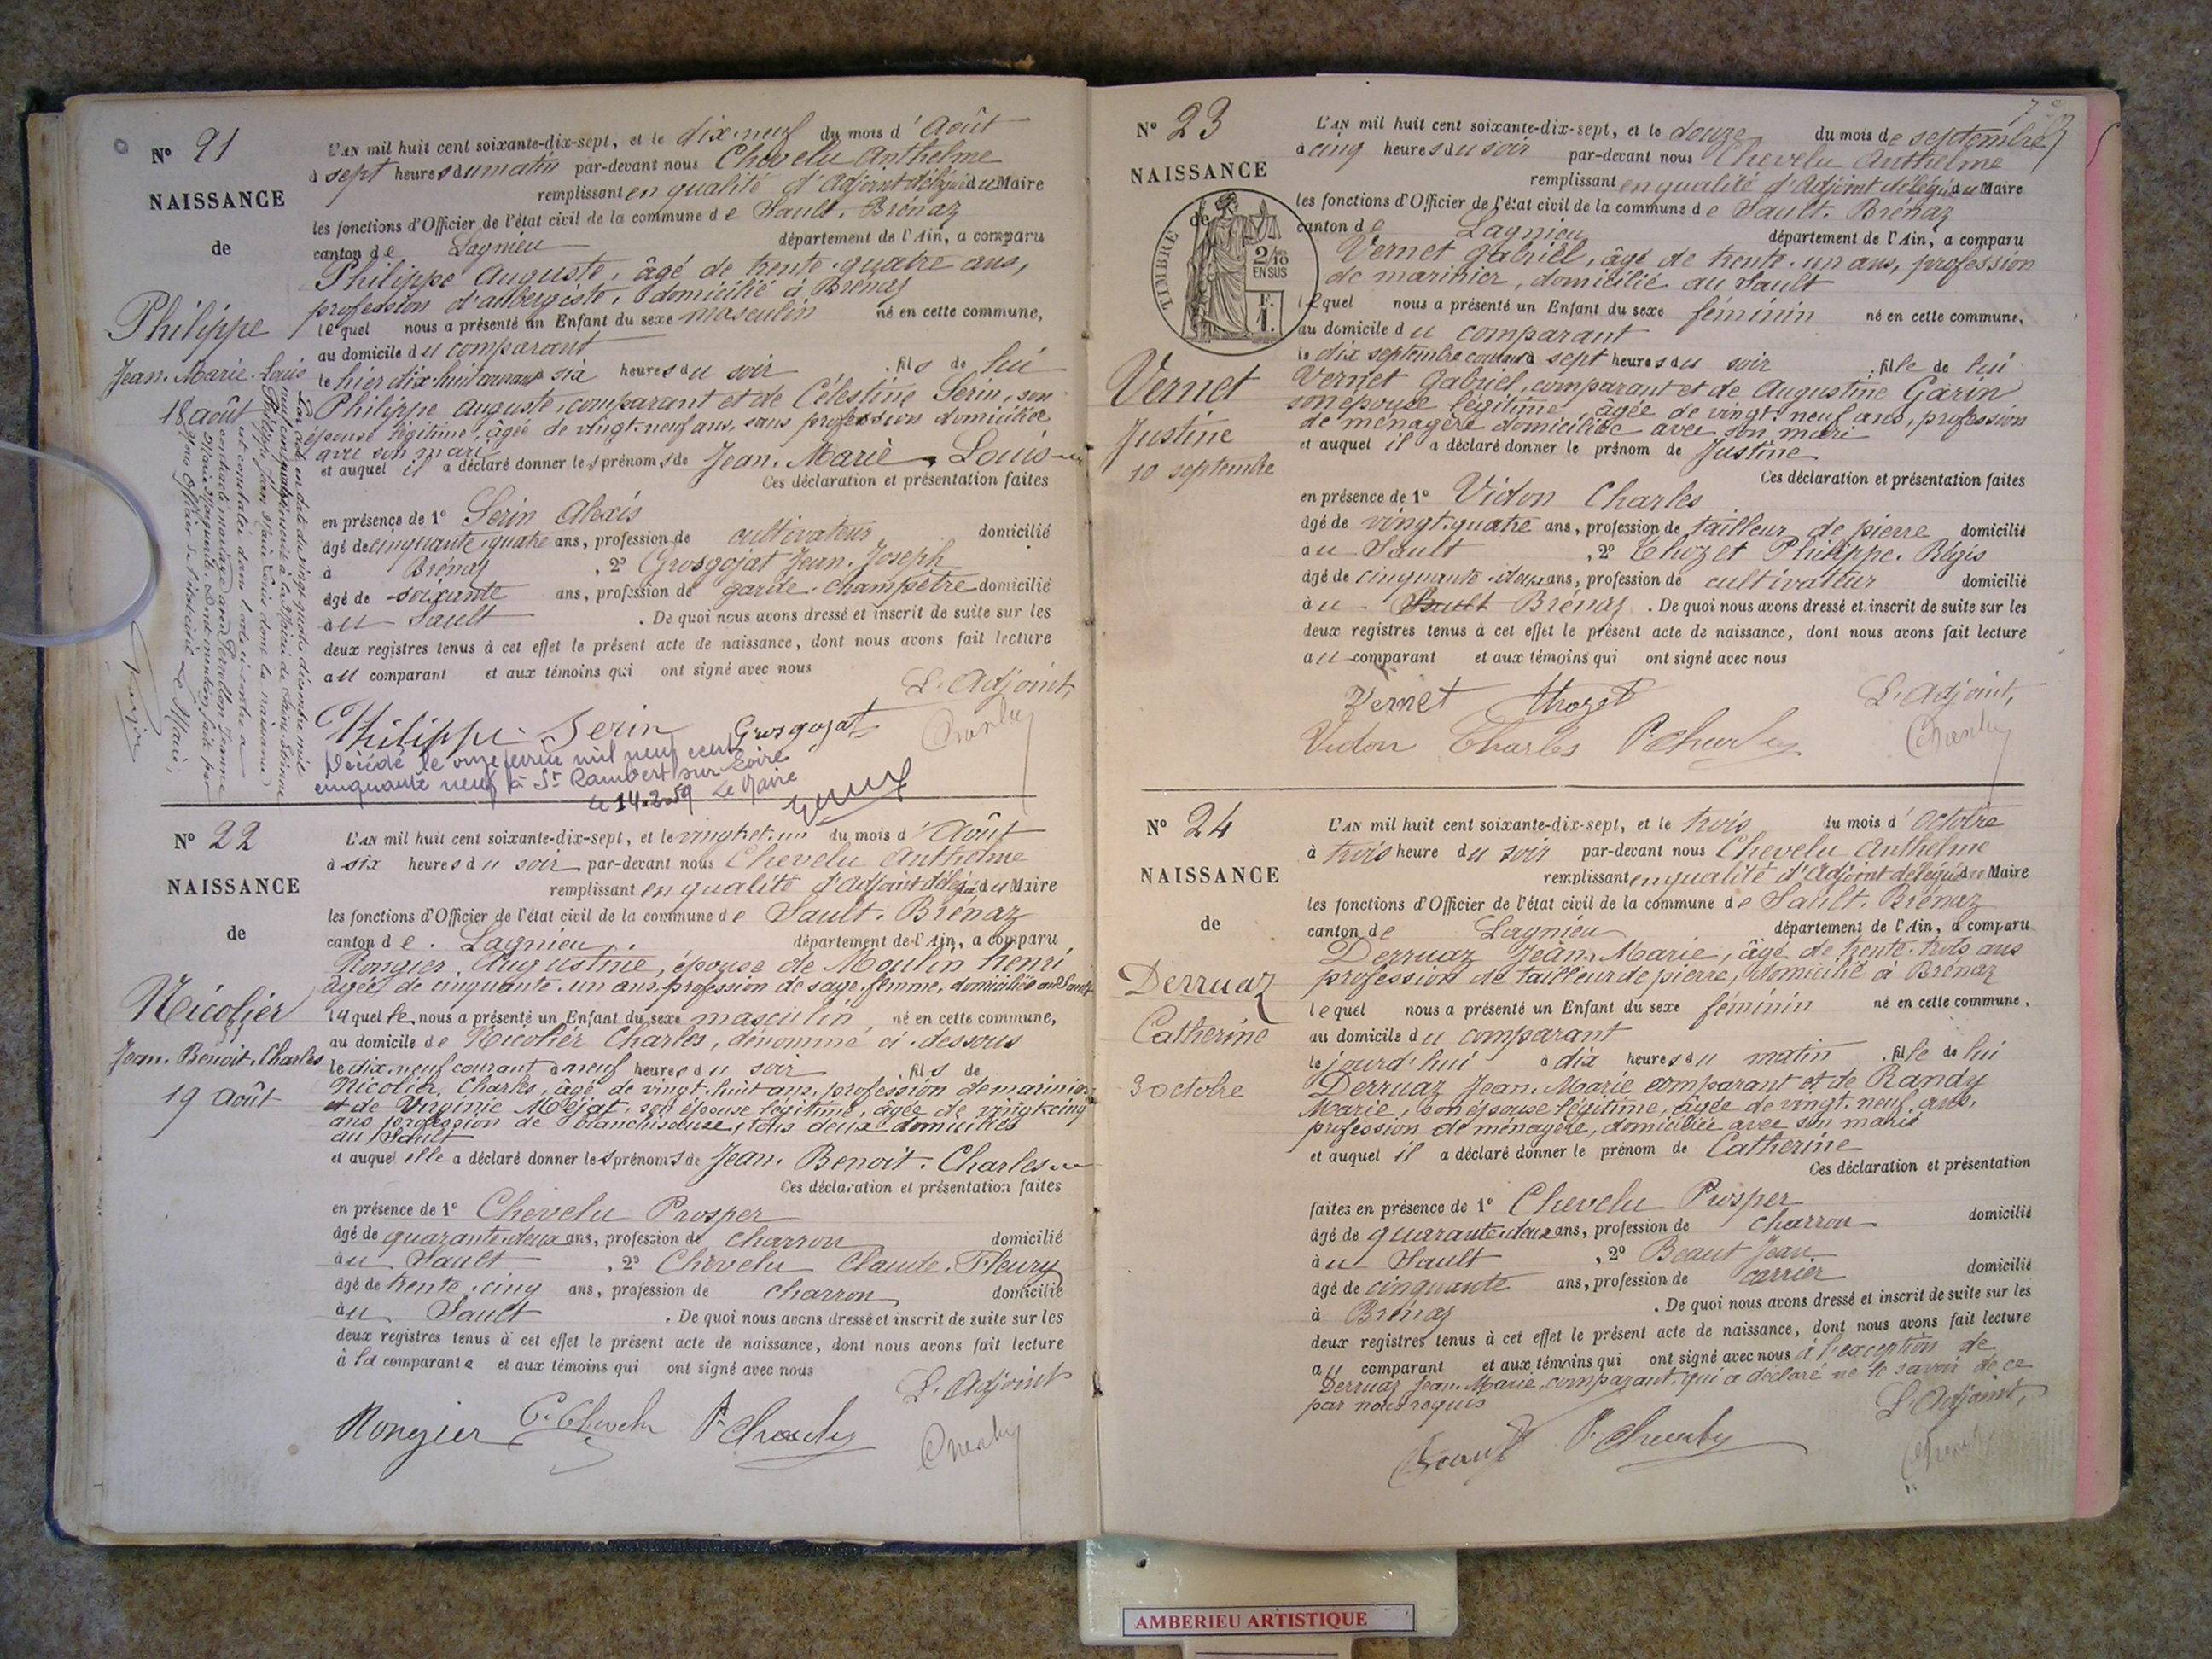 N° 21
NAISSANCE
de
Philippe
Jean-Marie-Louis
18 août
L'AN mil huit cent soixante-dix-sept, et le dix-neuf du mois d'Août
à sept heures du matin par-devant nous Chevelu Anthelme
remplissant en qualité d'Adjoint délégué du Maire
les fonctions d'Officier de l'état civil de la commune de Sault-Brénaz
canton de Lagnieu département de l'Ain, a comparu
Philippe Auguste, âgé de trente-quatre ans,
profession d'aubergiste, domicilié à Brénaz
lequel nous a présenté un Enfant du sexe masculin né en cette commune,
au domicile du comparant
le hier dix huit courant à six heures du soir fils de lui
Philippe Auguste, comparant et de Célestine Serin, son
épouse légitime, âgée de vingt-neuf ans, sans profession domiciliée
avec son mari
et auquel il a déclaré donner les prénoms de Jean-Marie-Louis
Ces déclaration et présentation faites
en présence de 1° Serin Alexis
âgé de cinquante-quatre ans, profession de cultivateur domicilié
à Brénaz, 2° Grosgojat Jean-Joseph
âgé de soixante ans, profession de garde-champêtre domicilié
au Sault. De quoi nous avons dressé et inscrit de suite sur les
deux registres tenus à cet effet le présent acte de naissance, dont nous avons fait lecture
au comparant et aux témoins qui ont signé avec nous
L'Adjoint,
Philippe Serin Grosgojat
Décédé le onze février mil neuf cent
cinquante neuf à St Rambert sur Loire
le 14.2.59 Le Maire
N° 22
NAISSANCE
de
Nicolier
Jean-Benoit-Charles
19 Août
L'AN mil huit cent soixante-dix-sept, et le vingt-et-un du mois d'Août
à six heures du soir par-devant nous Chevelu Anthelme
remplissant en qualité d'Adjoint délégué du Maire
les fonctions d'Officier de l'état civil de la commune de Sault-Brénaz
canton de Lagnieu département de l'Ain, a comparu
Rongier Augustine, épouse de Moulin henri
âgée de cinquante-un ans, profession de sage-femme, domiciliée au Sault
laquelle nous a présenté un Enfant du sexe masculin né en cette commune,
au domicile de Nicolier Charles, dénommé ci-dessous
le dix-neuf courant à neuf heures du soir fils de
Nicolier Charles, âgé de vingt-huit ans, profession de marinier
et de Virginie Méjat, son épouse légitime, âgée de vingt-cinq
ans profession de blanchisseuse, tous deux domiciliés
au Sault
et auquel elle a déclaré donner les prénoms de Jean-Benoit-Charles
Ces déclaration et présentation faites
en présence de 1° Chevelu Prosper
âgé de quarante-deux ans, profession de charron domicilié
au Sault, 2° Chevelu Claude-Fleury
âgé de trente-cinq ans, profession de charron domicilié
au Sault. De quoi nous avons dressé et inscrit de suite sur les
deux registres tenus à cet effet le présent acte de naissance, dont nous avons fait lecture
à la comparante et aux témoins qui ont signé avec nous
L'Adjoint
Rongier C. Chevelu P. Chevelu
N° 23
NAISSANCE
de
TIMBRE
2/10
EN SUS
F.
1.
Vernet
Justine
10 septembre
L'AN mil huit cent soixante-dix-sept, et le douze du mois de septembre
à cinq heures du soir par-devant nous Chevelu Anthelme
remplissant en qualité d'Adjoint délégué du Maire
les fonctions d'Officier de l'état civil de la commune de Sault-Brénaz
canton de Lagnieu département de l'Ain, a comparu
Vernet Gabriel, âgé de trente-un ans, profession
de marinier, domicilié au Sault
lequel nous a présenté un Enfant du sexe féminin né en cette commune,
au domicile du comparant
le dix septembre courant à sept heures du soir fille de lui
Vernet Gabriel, comparant et de Augustine Garin
son épouse légitime, âgée de vingt-neuf ans, profession
de ménagère domiciliée avec son mari
et auquel il a déclaré donner le prénom de Justine
Ces déclaration et présentation faites
en présence de 1° Vidon Charles
âgé de vingt-quatre ans, profession de tailleur de pierre domicilié
au Sault, 2° Thozet Philippe-Régis
âgé de cinquante-deux ans, profession de cultivateur domicilié
à Brénaz. De quoi nous avons dressé et inscrit de suite sur les
deux registres tenus à cet effet le présent acte de naissance, dont nous avons fait lecture
au comparant et aux témoins qui ont signé avec nous
L'Adjoint,
Vernet Thozet
Vidon Charles
N° 24
NAISSANCE
de
Derruaz
Catherine
3 octobre
L'AN mil huit cent soixante-dix-sept, et le trois du mois d'Octobre
à trois heure du soir par-devant nous Chevelu Anthelme
remplissant en qualité d'Adjoint délégué du Maire
les fonctions d'Officier de l'état civil de la commune de Sault-Brénaz
canton de Lagnieu département de l'Ain, a comparu
Derruaz Jean-Marie, âgé de trente-trois ans
profession de tailleur de pierre, domicilié à Brénaz
lequel nous a présenté un Enfant du sexe féminin né en cette commune,
au domicile du comparant
le jourd'hui à dix heures du matin fille de lui
Derruaz Jean-Marie comparant et de Randy
Marie, son épouse légitime, âgée de vingt-neuf ans,
profession de ménagère, domiciliée avec son mari
et auquel il a déclaré donner le prénom de Catherine
Ces déclaration et présentation
faites en présence de 1° Chevelu Prosper
âgé de quarante-deux ans, profession de charron domicilié
au Sault, 2° Beaut Jean
âgé de cinquante ans, profession de carrier domicilié
à Brénaz. De quoi nous avons dressé et inscrit de suite sur les
deux registres tenus à cet effet le présent acte de naissance, dont nous avons fait lecture
au comparant et aux témoins qui ont signé avec nous à l'exception de
Derruaz Jean-Marie, comparant, qui a déclaré ne le savoir de ce
par nous requis
L'Adjoint,
Beaut P. Chevelu
AMBERIEU ARTISTIQUE